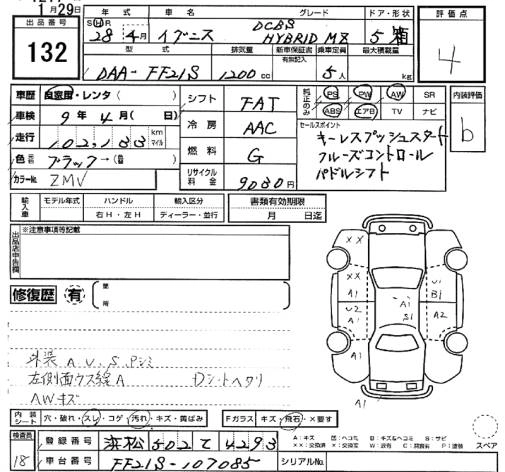 1月29日
出品番号
132
年式 車名 グレード ドア・形状
S H 28年 4月 イグニス DCBS HYBRID MZ 5 箱
型式 排気量 新車保証書 有無記入 乗車定員 最大積載量
DAA-FF21S 1200cc 5人 kg
評価点
4
車歴 自家用・レンタ( )
車検 9年4月( 日)
走行 102,133 km マイル
色 ブラック→( )
カラーNo. ZMV
シフト FAT
冷房 AAC
燃料 G
リサイクル料金 9030円
純正のみ PS PW AW SR
ABS エアB TV ナビ
セールスポイント
キーレスプッシュスタート
クルーズコントロール
パドルシフト
内装評価
b
輸入車 モデル年式 ハンドル 輸入区分
年 右H・左H ディーラー・並行
書類有効期限
月 日迄
出品店申告欄
※注意事項等記載
修復歴 有
箇所
外装 A U、S、Pシミ
左側面ウス線A Dシートヘタリ
AWキズ
XX XX
A1 U1 B1
U2 A1 A1 S1 A2
A1
内装シート 穴・破れ・スレ・コゲ・汚れ・キズ・黄ばみ
Fガラス キズ・飛石・×要す
スペア
検査員
18
登録番号 浜松 502 て 4293
車台番号 FF21S-107085 シリアルNo.
A:キズ U:ヘコミ B:キズ&ヘコミ S:サビ
XX:交換済 X:要交換 W:波 C:腐食 P:塗装